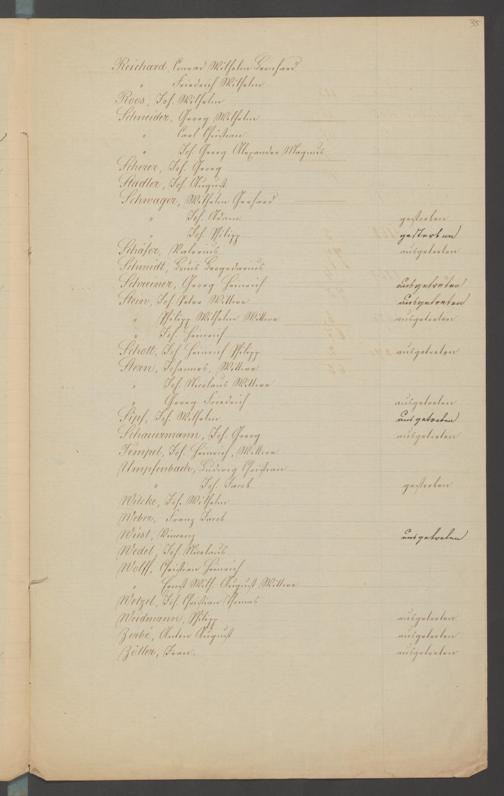 35
Reichard, Conrad Wilhelm Bernhard
" Friedrich Wilhelm
Roos, Joh. Wilhelm
Schneider, Georg Wilhelm
" Carl Christian
" Joh Georg Alexander Magnus
Scherer, Joh. Georg
Stadler, Joh. August
Schwager, Wilhelm Gerhard
" Joh. Adam gestorben
" Joh. Philipp gestorben
Schäfer, Valerius ausgetreten
Schmidt, Louis
Schreiner, Georg Heinrich ausgetreten
Stein, Joh Peter Wittwe ausgetreten
" Philipp Wilhelm Wittwe ausgetreten
" Joh. Heinrich
Schott, Joh Heinrich Philipp ausgetreten
Stern, Johannes, Wittwe
" Joh Nicolaus Wittwe
" Georg Friedrich ausgetreten
Joh. Wilhelm ausgetreten
Schauermann, Joh. Georg ausgetreten
Tempel, Joh. Heinrich, Wittwe
Umpfenbach, Ludwig Christian
" Joh. Jacob gestorben
Wilcke, Joh. Wilhelm
Weber, Franz Jacob
Wüst, Vincenz ausgetreten
Wedel, Joh Nicolaus
Wolff, Christian Heinrich
" Ernst Wilh. August, Wittwe
Wetzel, Joh. Christian Thomas
Weidmann, Philipp ausgetreten
Zerbe, Anton August ausgetreten
Zöller, Franz ausgetreten